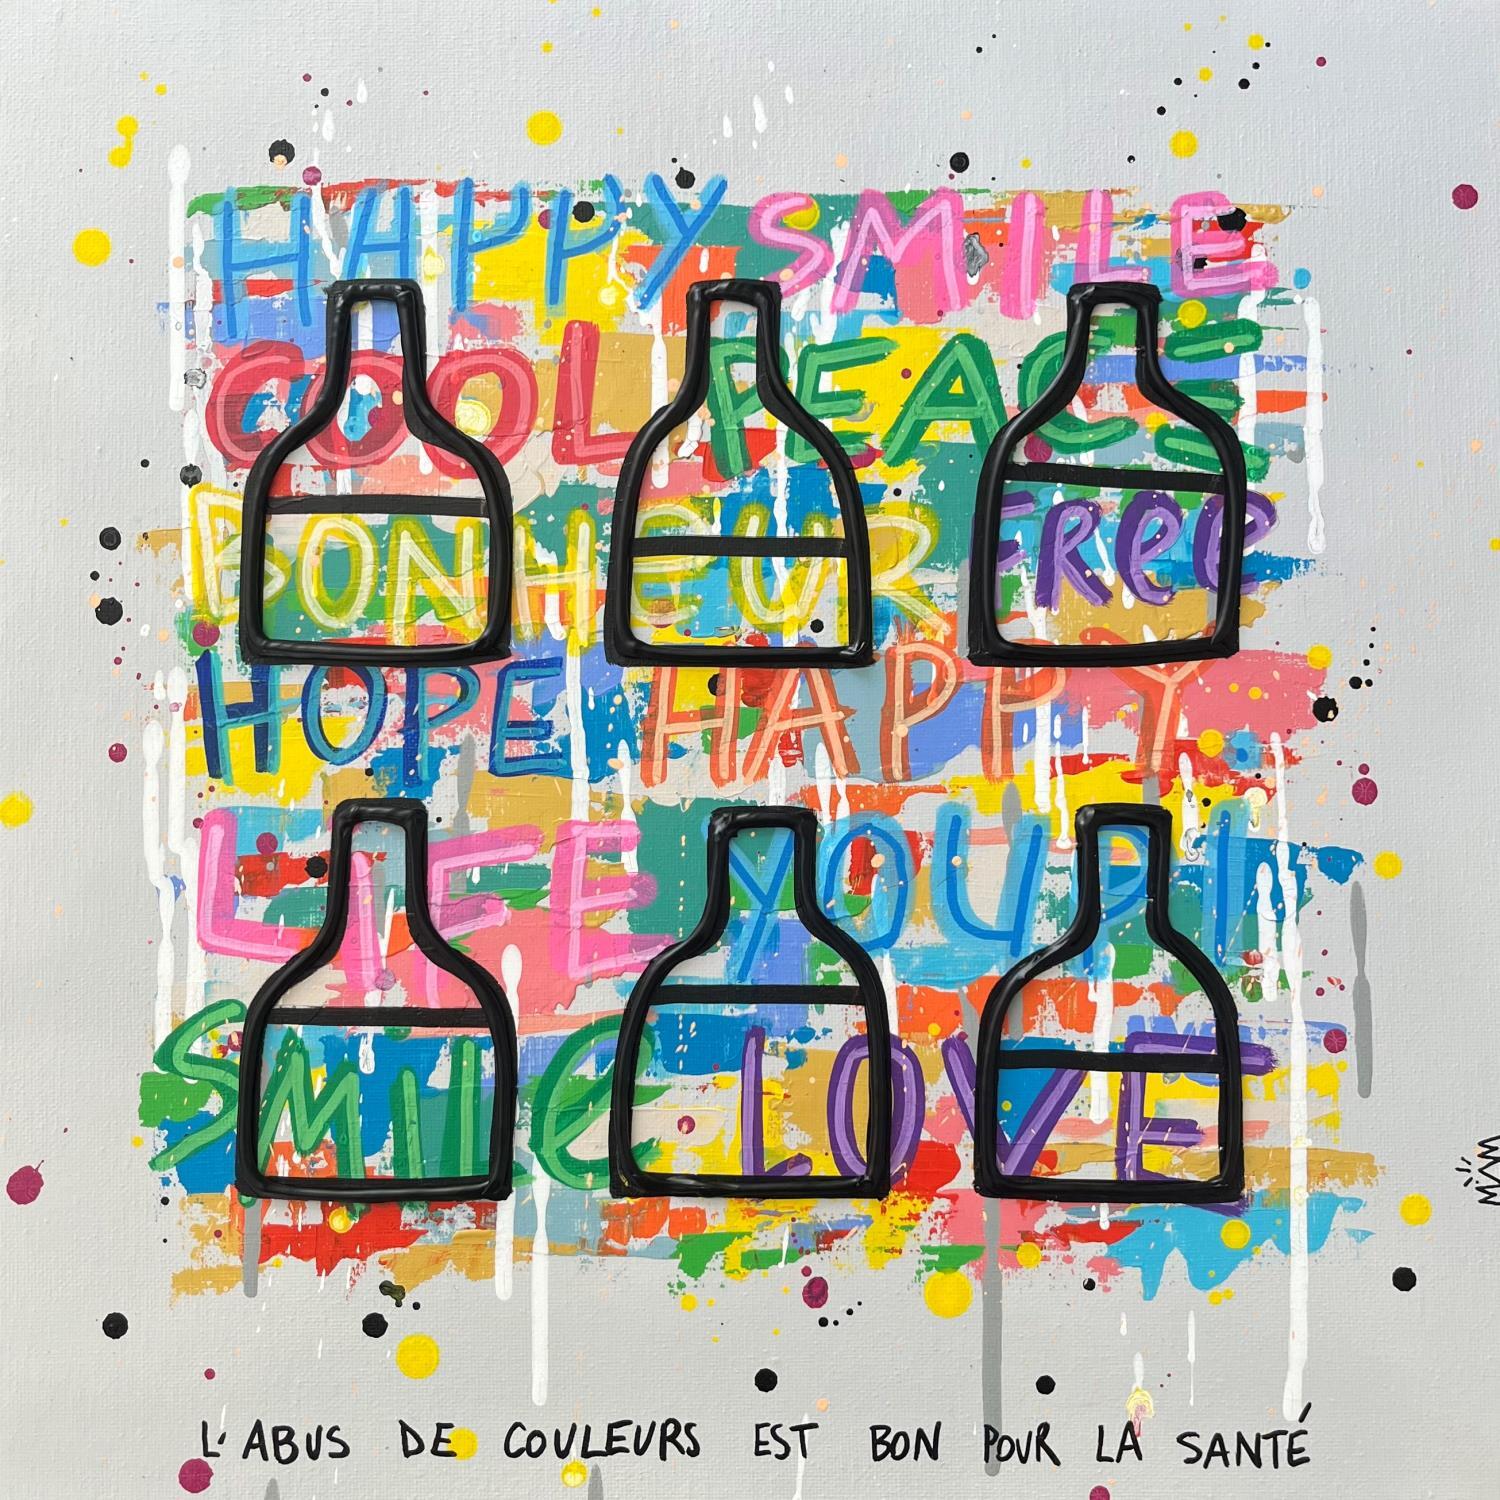 HAPPY SMILE
COOL PEACE
BONHEUR FREE
HOPE HAPPY
LIFE YOUPI
SMILE LOVE
L'ABUS DE COULEURS EST BON POUR LA SANTÉ